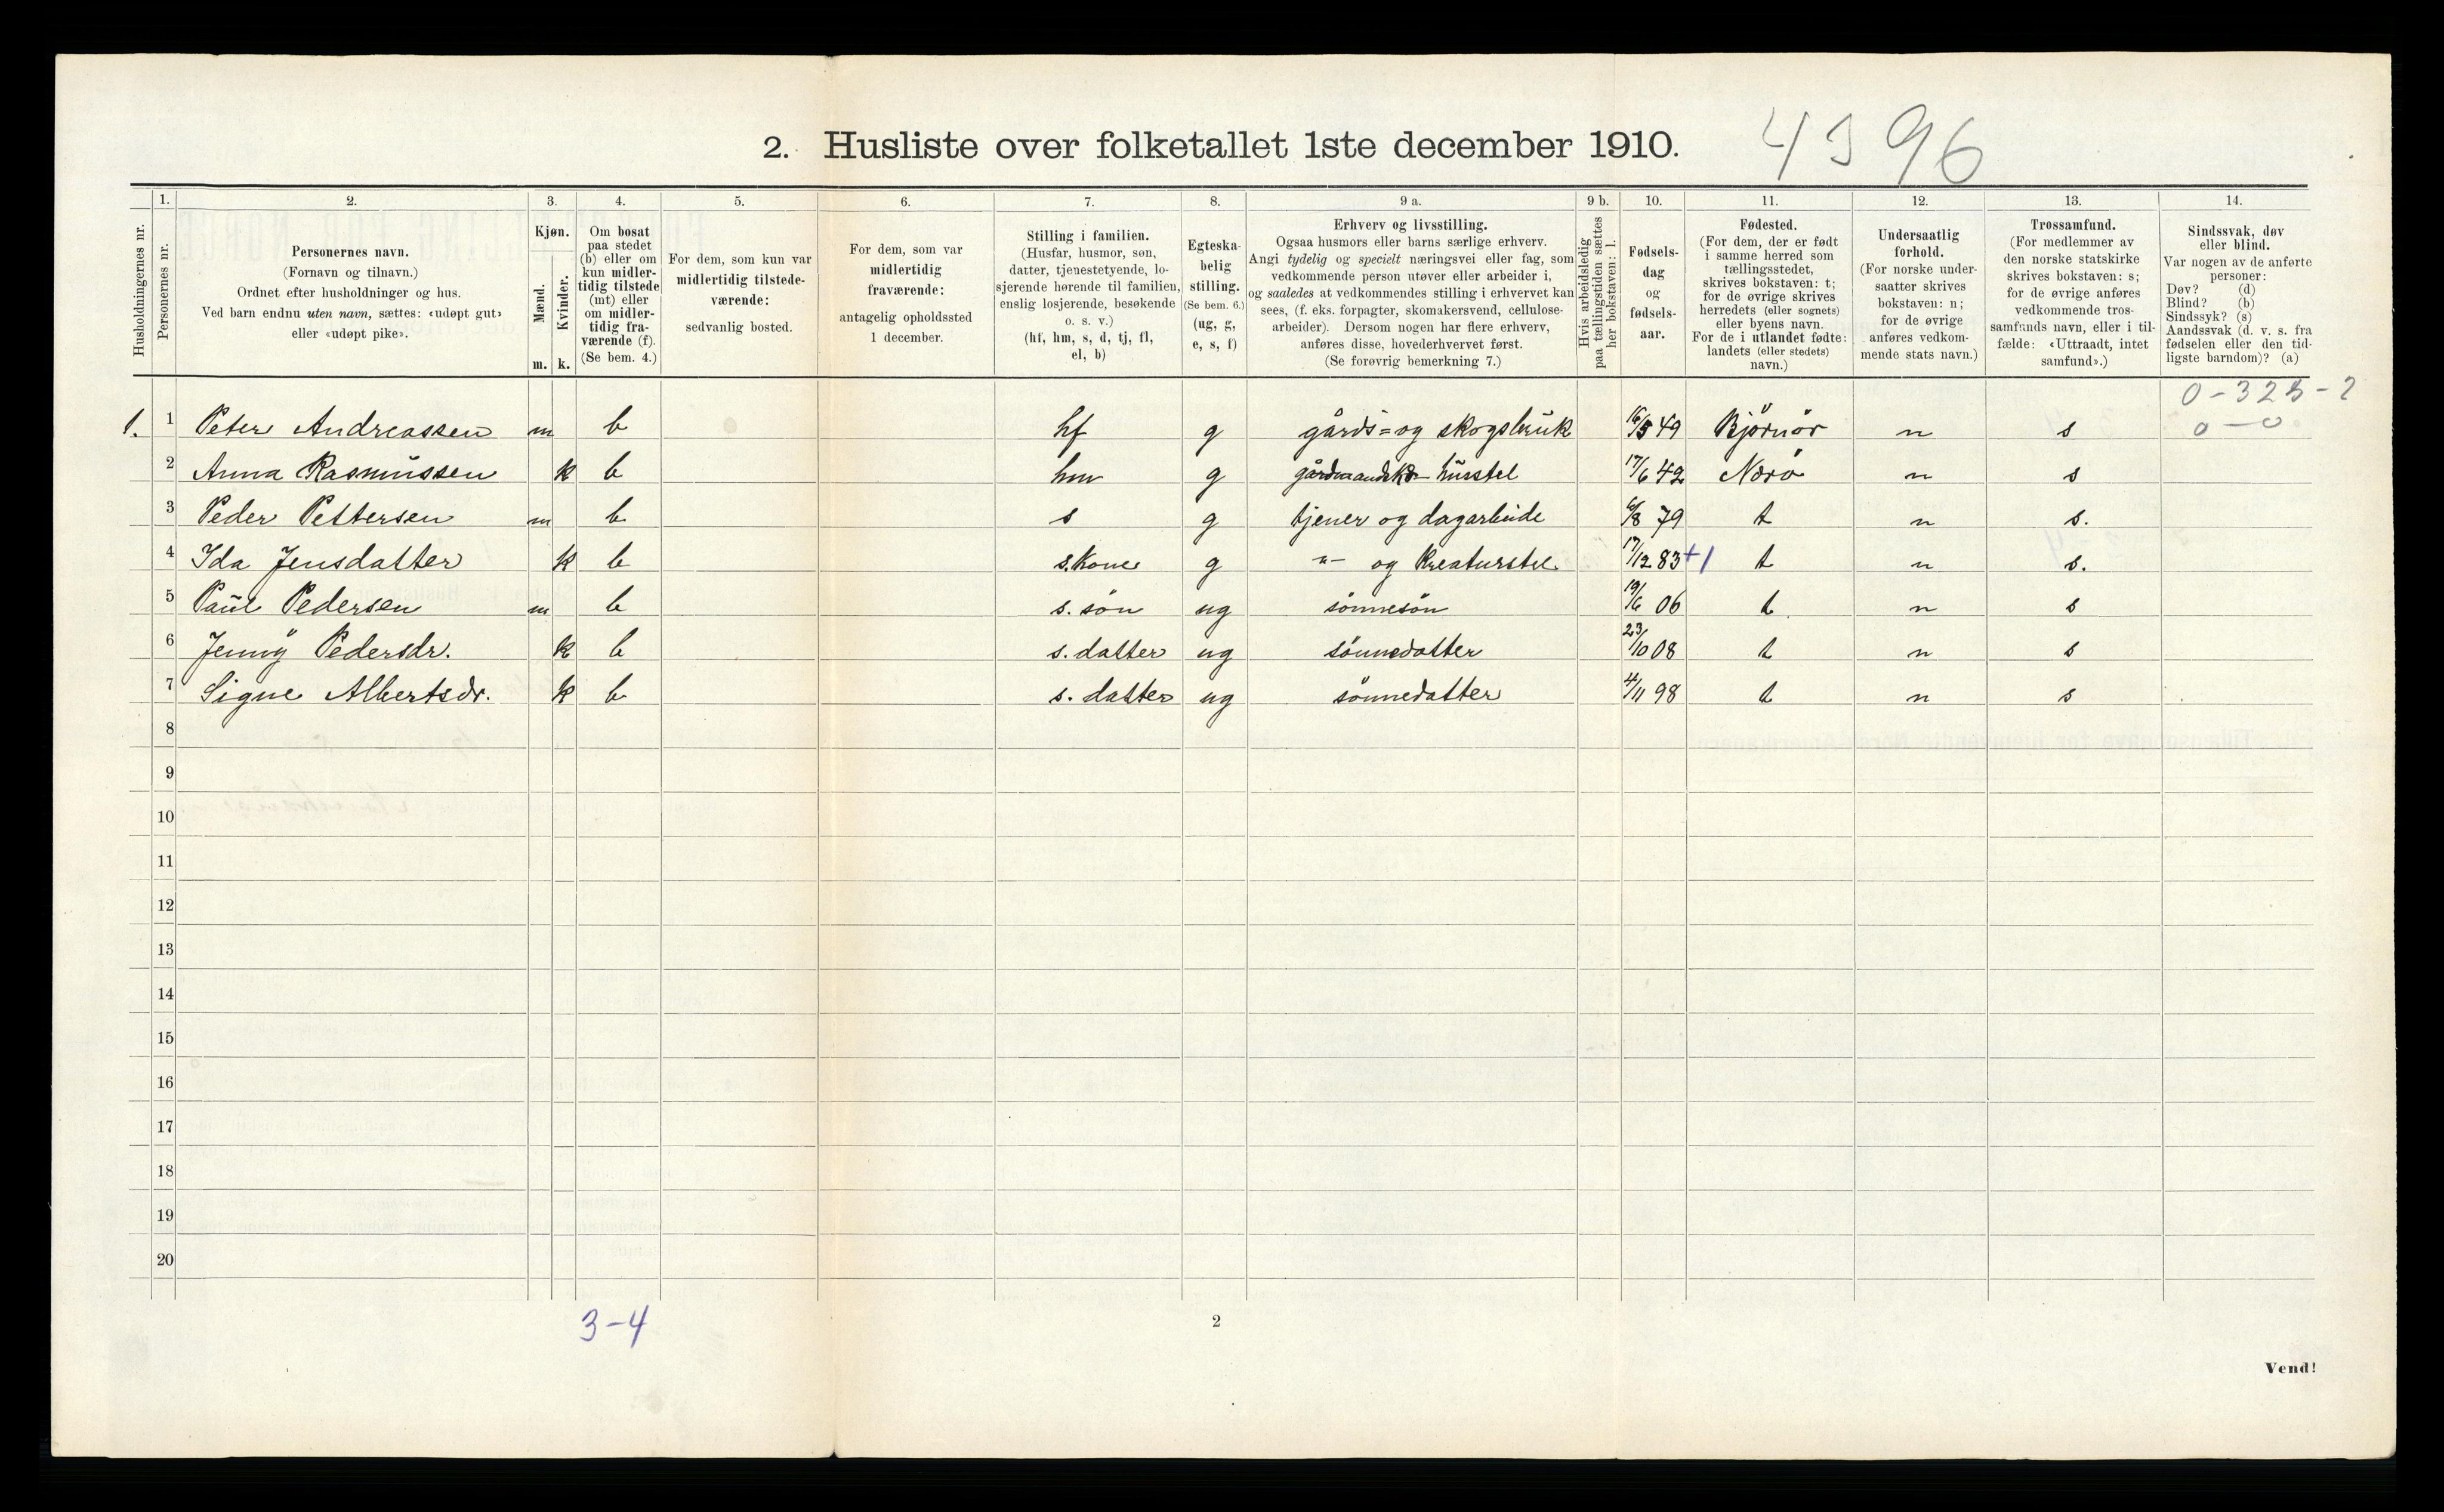 4396
2. Husliste over folketallet 1ste december 1910.
Husholdningernes nr.
1. Personernes nr.
2. Personernes navn. (Fornavn og tilnavn.) Ordnet efter husholdninger og hus. Ved barn endnu uten navn, sættes: «udøpt gut» eller «udøpt pike».
3. Kjøn. Mænd. m. Kvinder. k.
4. Om bosat paa stedet (b) eller om kun midlertidig tilstede (mt) eller om midlertidig fraværende (f). (Se bem. 4.)
5. For dem, som kun var midlertidig tilstedeværende: sedvanlig bosted.
6. For dem, som var midlertidig fraværende: antagelig opholdssted 1 december.
7. Stilling i familien. (Husfar, husmor, søn, datter, tjenestetyende, losjerende hørende til familien, enslig losjerende, besøkende o. s. v.) (hf, hm, s, d, tj, fl, el, b)
8. Egteskabelig stilling. (Se bem. 6.) (ug, g, e, s, f)
9 a. Erhverv og livsstilling. Ogsaa husmors eller barns særlige erhverv. Angi tydelig og specielt næringsvei eller fag, som vedkommende person utøver eller arbeider i, og saaledes at vedkommendes stilling i erhvervet kan sees, (f. eks. forpagter, skomakersvend, cellulosearbeider). Dersom nogen har flere erhverv, anføres disse, hovederhvervet først. (Se forøvrig bemerkning 7.)
9 b. Hvis arbeidsledig paa tællingstiden sættes her bokstaven: l.
10. Fødselsdag og fødselsaar.
11. Fødested. (For dem, der er født i samme herred som tællingsstedet, skrives bokstaven: t; for de øvrige skrives herredets (eller sognets) eller byens navn. For de i utlandet fødte: landets (eller stedets) navn.)
12. Undersaatlig forhold. (For norske undersaatter skrives bokstaven: n; for de øvrige anføres vedkommende stats navn.)
13. Trossamfund. (For medlemmer av den norske statskirke skrives bokstaven: s; for de øvrige anføres vedkommende trossamfunds navn, eller i tilfælde: «Uttraadt, intet samfund».)
14. Sindssvak, døv eller blind. Var nogen av de anførte personer: Døv? (d) Blind? (b) Sindssyk? (s) Aandssvak (d. v. s. fra fødselen eller den tidligste barndom)? (a)
0-325-2
0-0
1. 1 Peter Andreassen m b hf g gårds= og skogsbruk 16/5 49 Bjørnör n s
2 Anna Rasmussen k b hm g husstel 17/6 42 Nærö n s
3 Peder Pettersen m b s g tjener og dagarbeide 6/8 79 t n s.
4 Ida Jensdatter k b s. kone g -"- og kreaturstel. 17/12 83 +1 t n s.
5 Paul Pedersen m b s. sön ug sönnesön 19/6 06 t n s
6 Jenny Pedersdr. k b s. datter ug sönnedatter 23/10 08 t n s
7 Signe Albertsdr. k b s. datter ug sönnedatter 4/11 98 t n s
8
9
10
11
12
13
14
15
16
17
18
19
20
3-4
2
Vend!